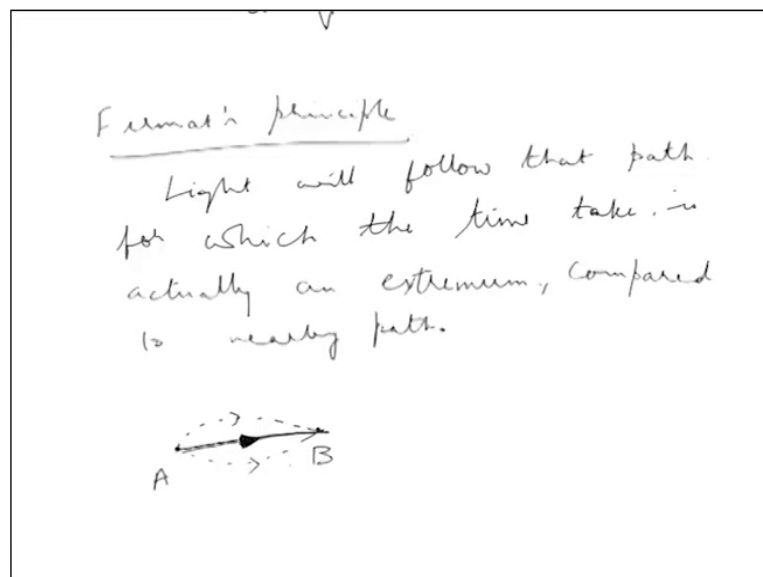 Fermat's principle
Light will follow that path
for which the time take is
actually an extremum, compared
to nearby path.
A
B